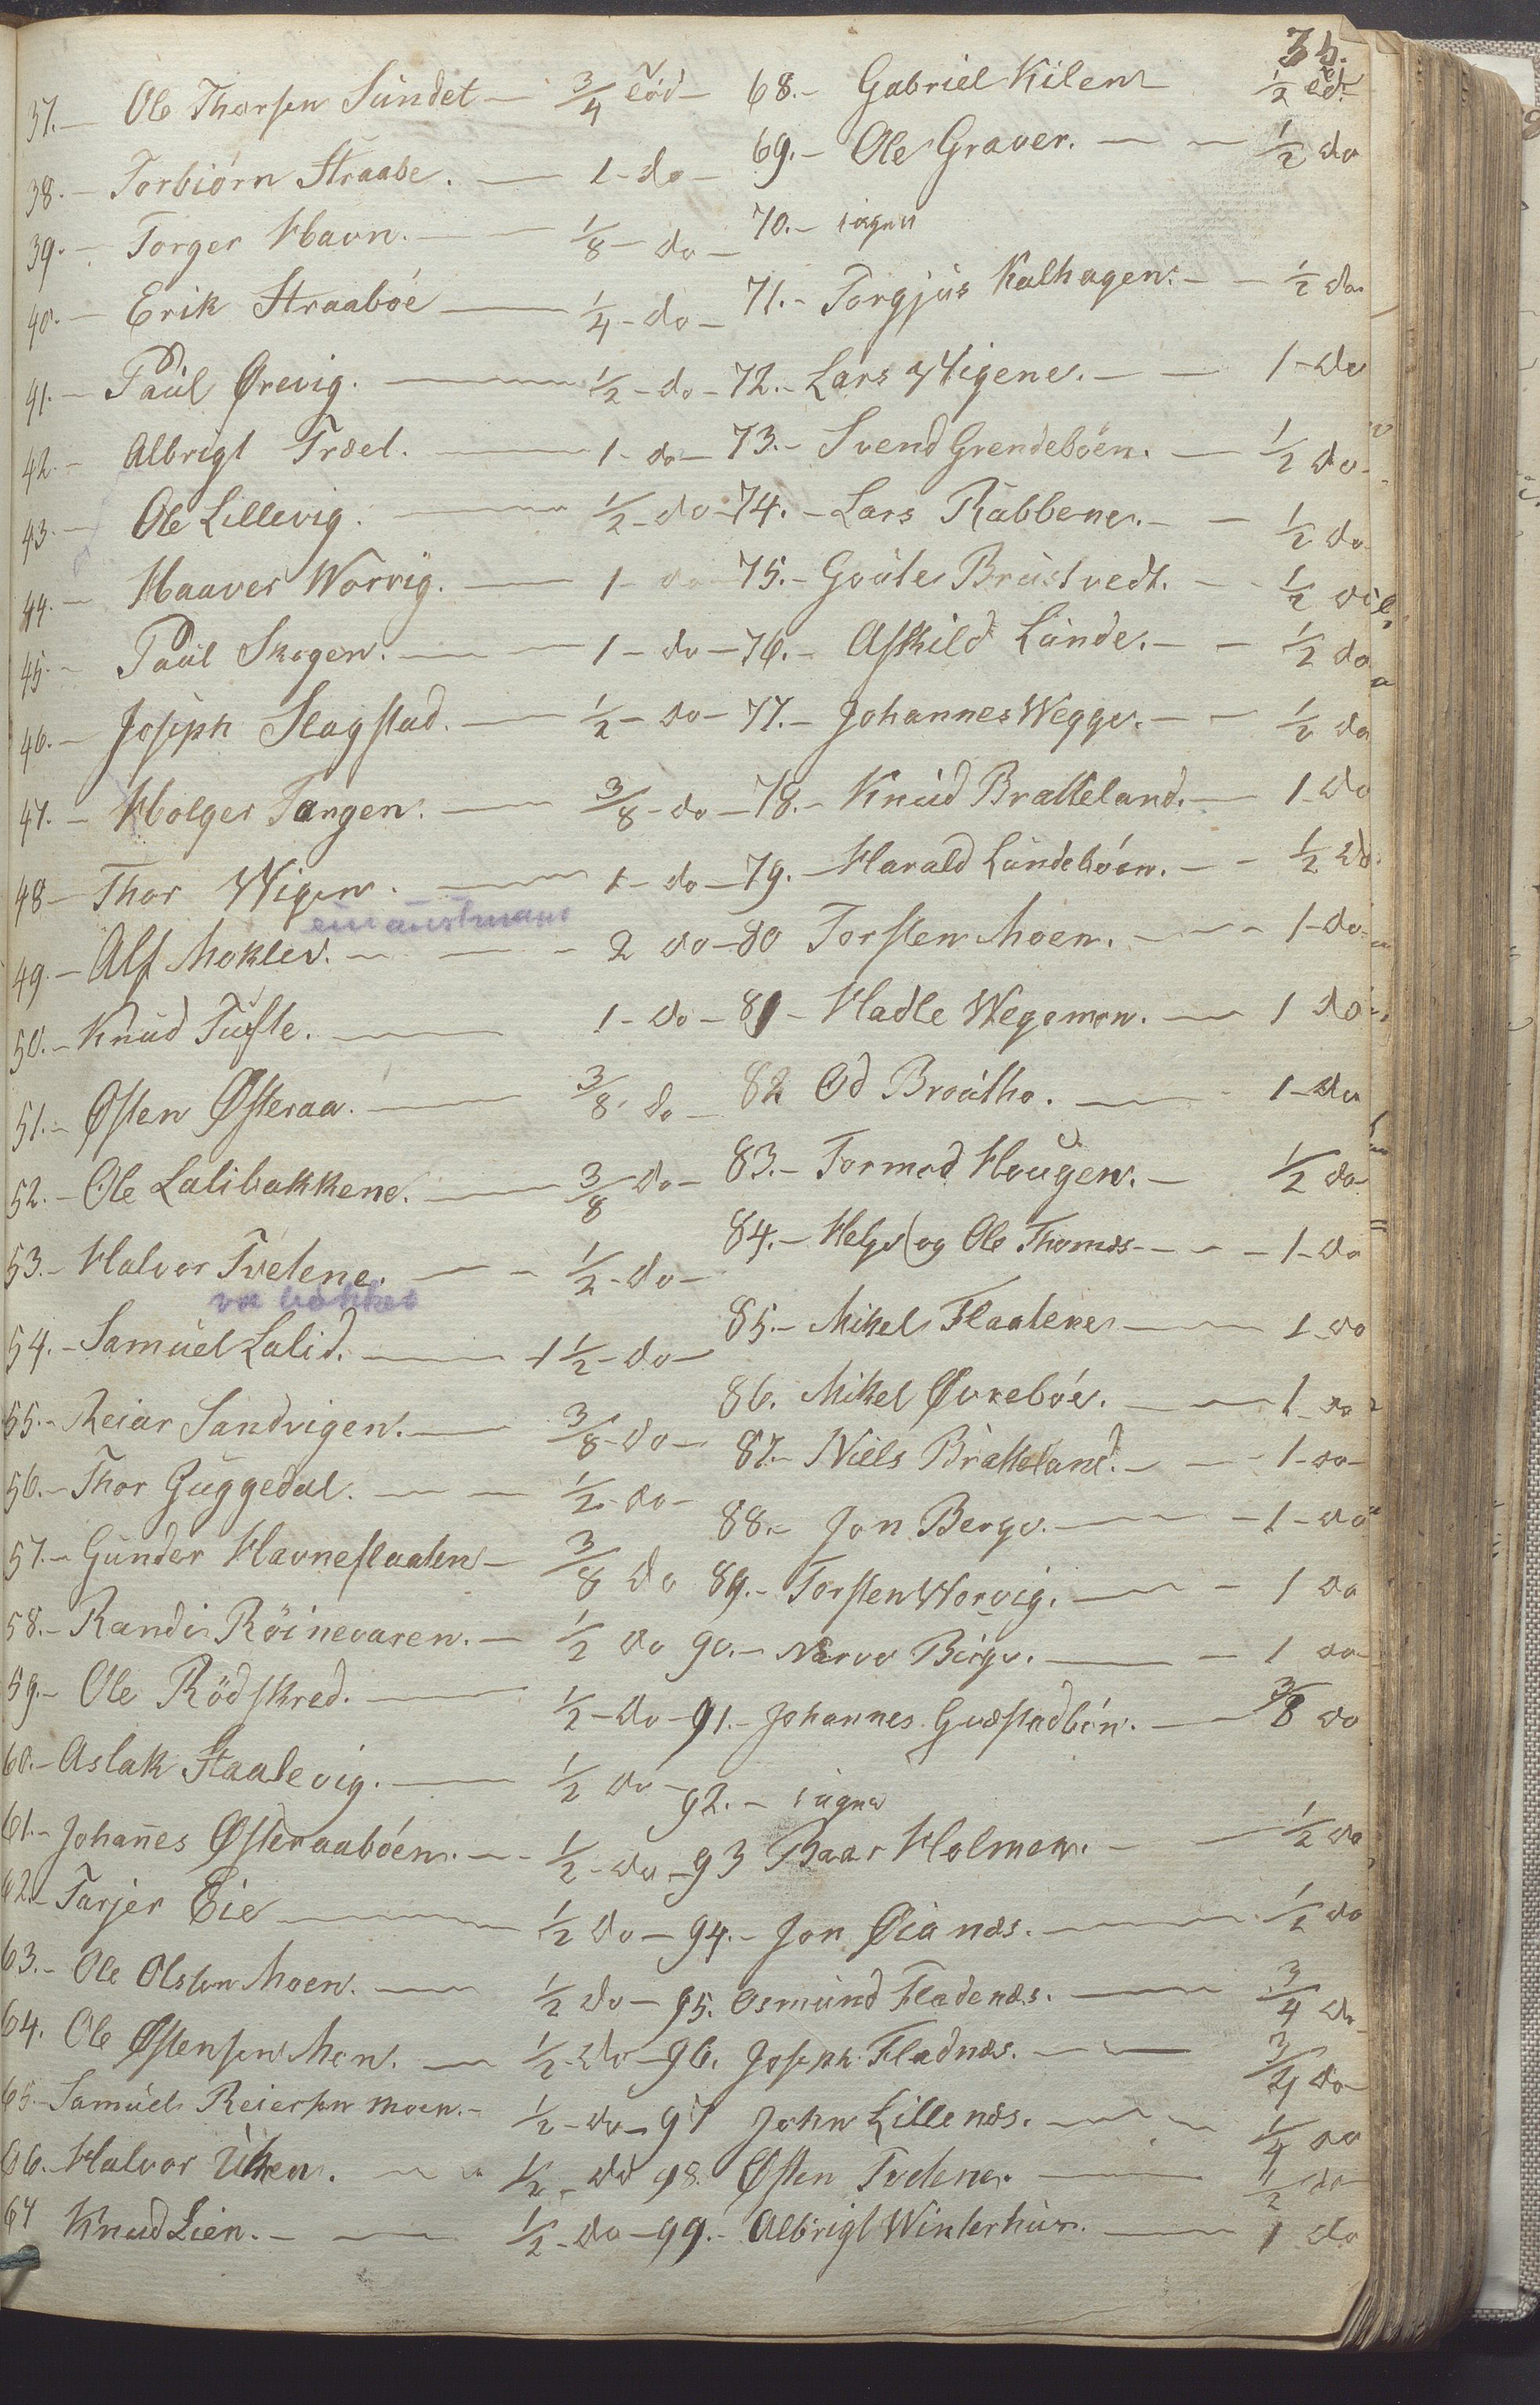 35.
37. — Ole Thorsen Sundet — 3/4 Lod —
38. — Torbiörn Straabe. — 1 - do —
39. — Torger Havn. — 1/8 - do —
40. — Erik Straaböe — 1/4 - do —
41. — Paul Ørevig. — 1/2 - do —
42. — Albrigt Træet. — 1 - do —
43. — Ole Lillevig. — 1/2 - do —
44. — Haaver Worvig. — 1 - do —
45. — Paul Skogen. — 1 - do —
46. — Joseph Slagstad. — 1/2 - do —
47. — Holger Tangen. — 3/8 - do —
48 — Thor Wigen. — 1 - do —
ein austmann
49. — Alf Moklev. — 2 do —
50. — Knud Tufte. — 1 - do —
51. — Østen Østeraa. — 3/8 - do —
52. — Ole Lalibakkene. — 3/8 do —
53. — Halvor Tvetene. — 1/2 - do —
54. — Samuel Lalid. — 1 1/2 - do —
55. — Reiar Sandvigen. — 3/8 - do —
56. — Thor Guggedal. — 1/2 - do —
57. — Gunder Havneflaaten — 3/8 do
58. — Randi Röinevaren. — 1/2 do
59. — Ole Rödskred. — 1/2 - do —
60. — Aslak Staalevig. — 1/2 do —
61. — Johañes Østeraabóen. — 1/2 - do —
62. — Tarjer Eie — 1/2 do —
63. — Ole Olssen Moen. — 1/2 do —
64. Ole Østensen Moen. — 1/2 - do —
65 — Samuel Reiersen Moen. — 1/2 - do —
66. — Halvor Uhen. — 1/2 - do
67 Knud Lien. — 1/2 - do —
68. — Gabriel Kilen — 1/2 Lod
69. — Ole Graver. — 1/2 do
70. — ingen
71. — Torgjus Kalhagen. — 1/2 do
72. — Lars Wigene. — 1 - do
73. — Svend Grendeböen. — 1/2 do
74. — Lars Rabbene. — 1/2 do
75. — Goute Brustvedt. — 1/2 do
76. — Askild Lunde. — 1/2 do
77. — Johannes Wegge. — 1/2 do
78. — Knud Bratteland. — 1 - do
79. — Harald Lundebóen. — 1/2 do
80 Torsten Moen. — 1 - do
81 — Hadle Wegemon. — 1 do
82 Od Broutho. — 1 - do
83. — Tormod Hougen. — 1/2 do
84. — Helge og Ole Thomes — 1 - do
85. — Mikel Flaatene — 1 - do
86. Mikel Øvrebóe. — 1 - do
87. — Niels Bratteland. — 1 - do —
88. — Jon Berge. — 1 - do
89. — Torsten Worvig. — 1 do
90. — Narve Birge. — 1 do
91. — Johannes Guestadbón. — 3/8 do
92. — ingen
93 Baar Holmen. — 1/2 do
94. — Jon Øianes. — 1/2 do
95. Osmund Fladenes. — 3/4 do
96. Joseph Fladnes. — 3/4 do
97 John Lillenes. — 1/4 do
98. Østen Tvetene. — 1/2 do
99. — Albrigt Winterhus. — 1 do